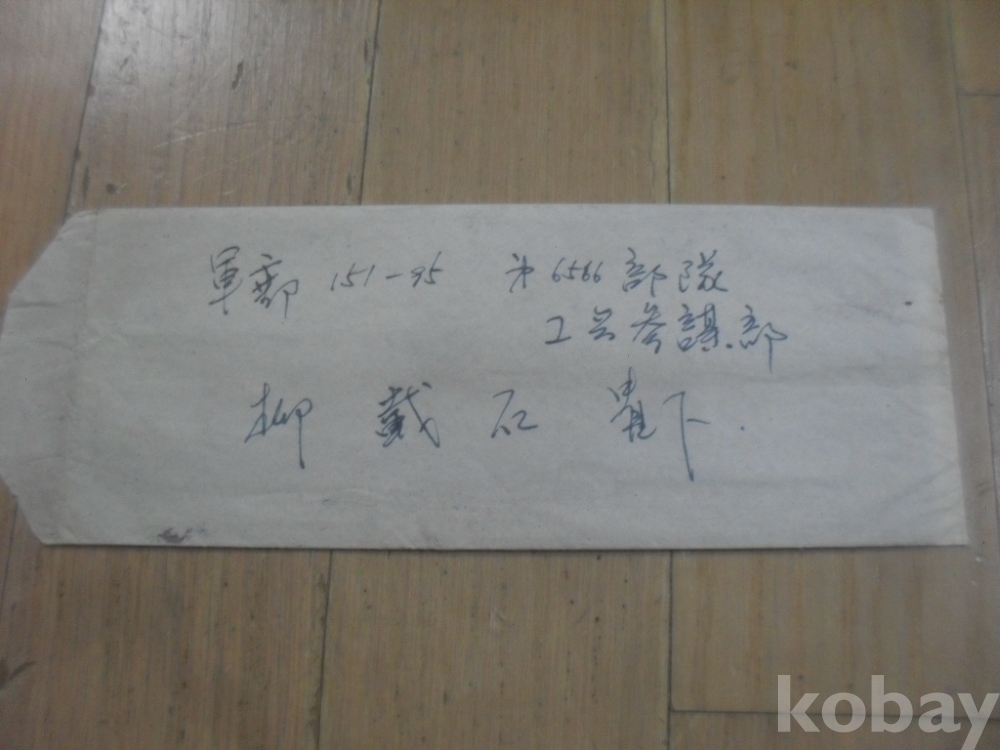 軍郵 151-95 第6566部隊
工兵参謀部
柳 戴 石 貴下.
kobay